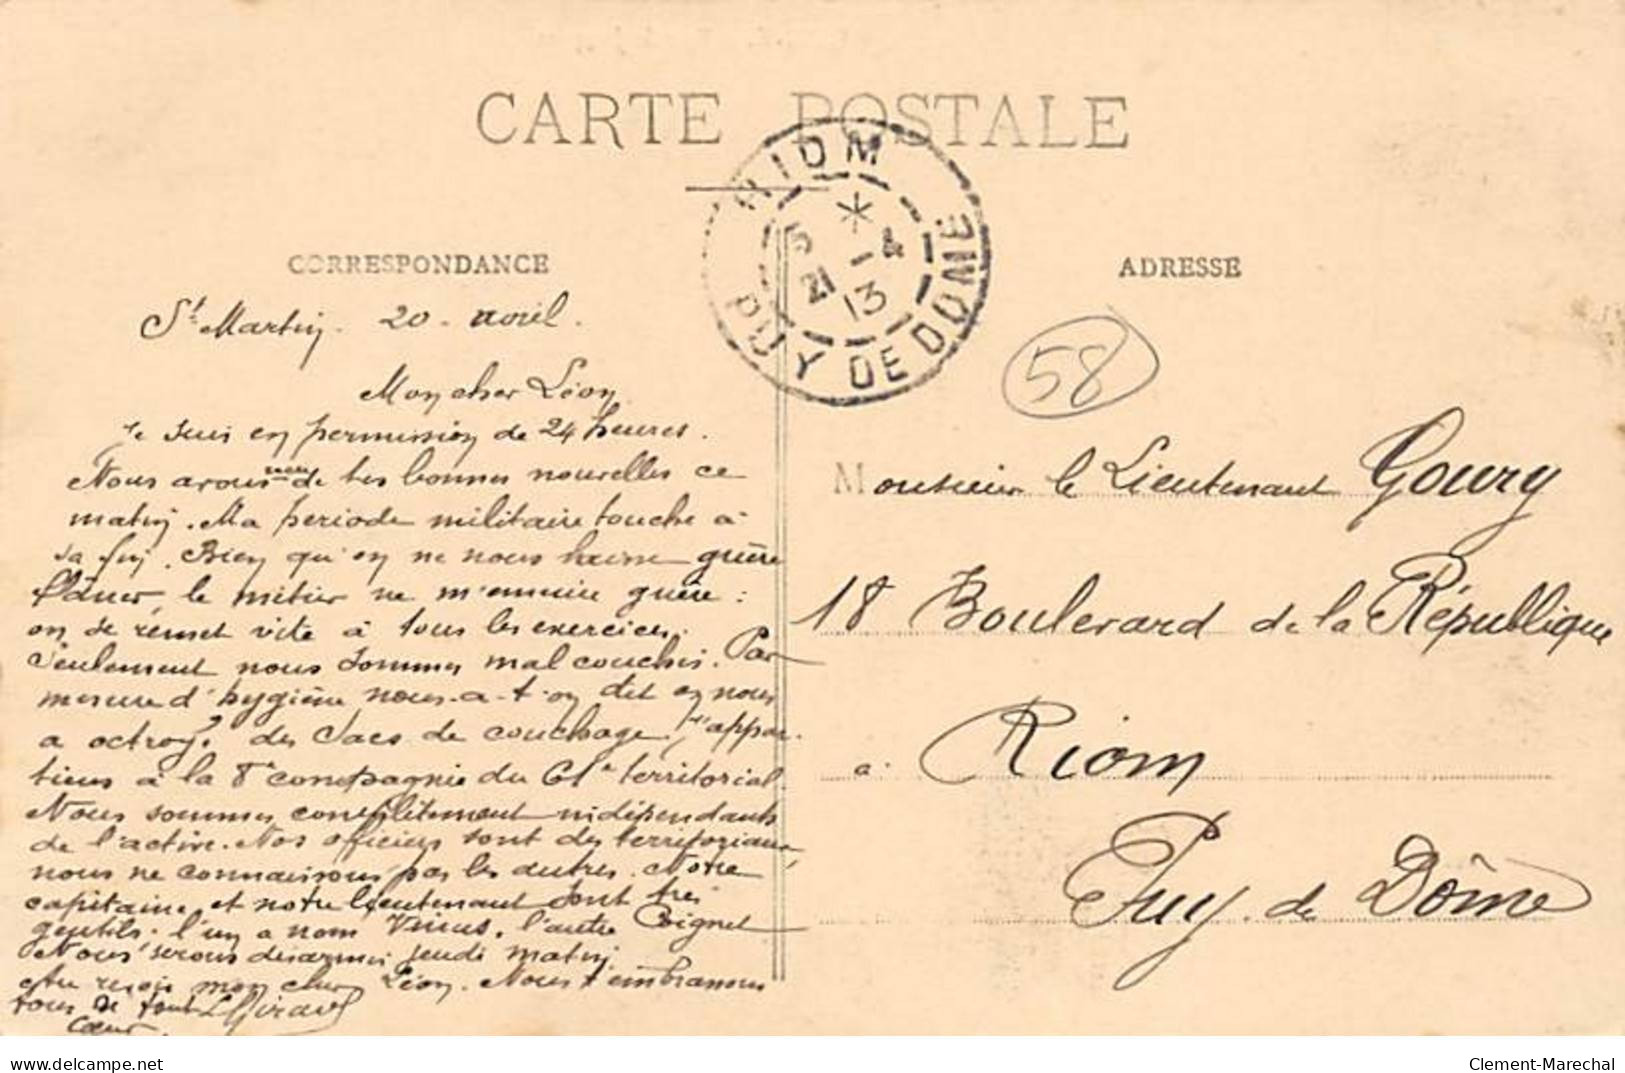 CARTE POSTALE
RIOM
PUY DE DOME
5 * - 4
21 13
CORRESPONDANCE
ADRESSE
St Martin. 20 - avril.
58
Mon cher Léon
Je suis en permission de 24 heures.
Nous avons reçu de tes bonnes nouvelles ce
matin. Ma période militaire touche à
sa fin. Bien qu'on ne nous laisse guère
flâner, le métier ne m'ennuie guère :
on se remet vite à tous les exercices.
Seulement nous sommes mal couchés. Par
mesure d'hygiène nous a-t-on dit on nous
a octroyé des sacs de couchage. J'appar-
tiens à la 8e compagnie du 61e territorial.
Nous sommes complètement indépendants
de l'active. Nos officiers sont des territoriaux,
nous ne connaissons pas les autres. Notre
capitaine et notre lieutenant sont très
gentils. l'un a nom l'autre Coignet
Nous serons désarmés jeudi matin.
Au revoir mon cher Léon. Nous t'embrassons
tous de tout
Cœur.
Monsieur le Lieutenant Goury
18 Boulevard de la République
à Riom
Puy-de Dôme
www.delcampe.net
Clement-Marechal